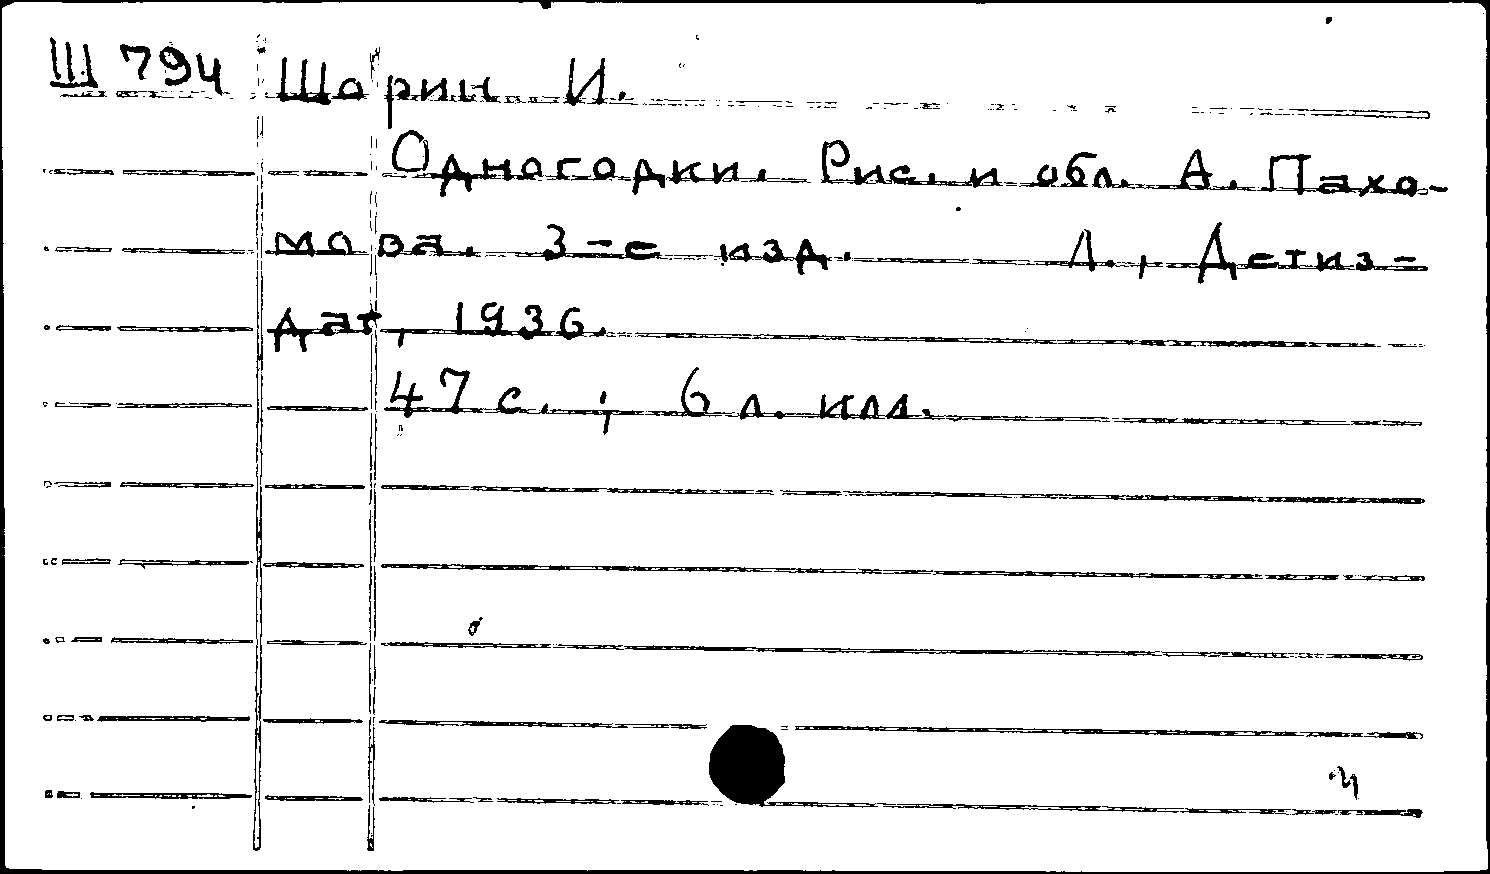 Ш 794 Шорин И.
Одногодки. Рис. и обл. А. Пахо-
мова. 3-е изд. Л., Детиз-
дат, 1936.
47 с. ; 6 л. илл.